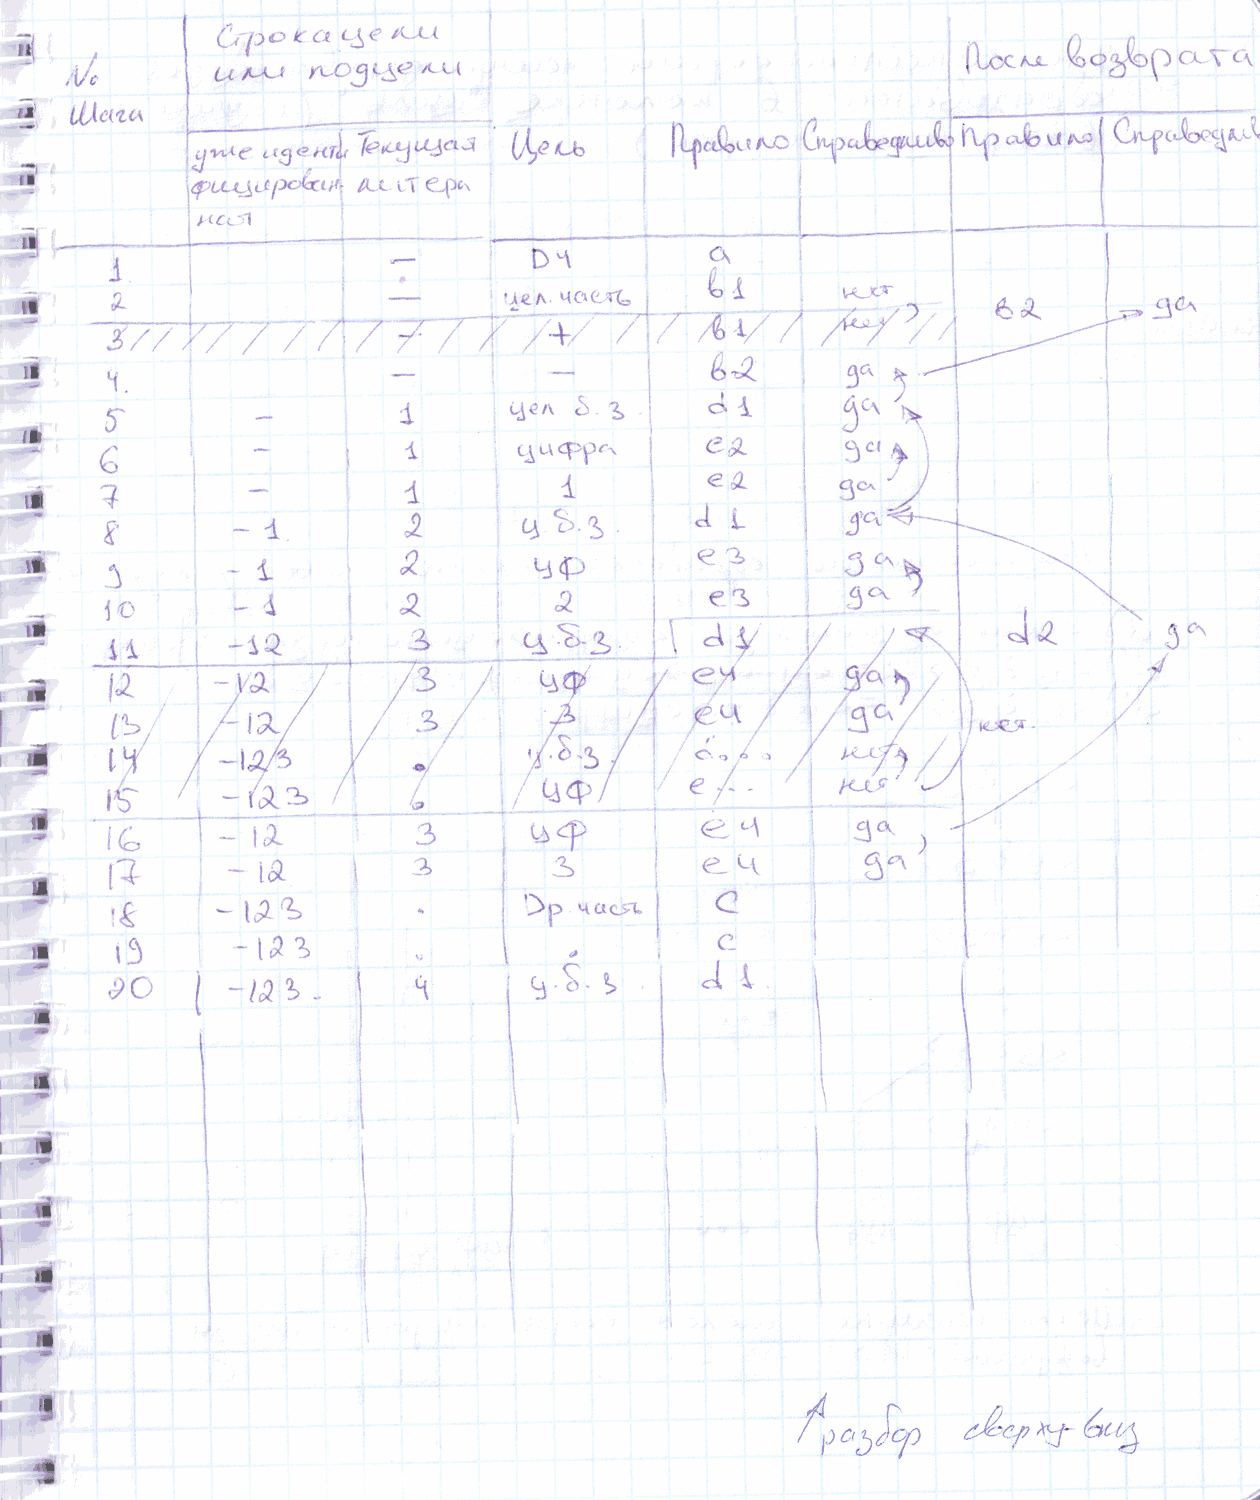 Строка цели
или подцели
После возврата
№
Шага
уже иденти
фицирован
ная
Текущая
литера
Цель
Правило
Справедливо
Правило
Справедлив
1 – DЧ a
2 – цел. часть в1 нет в2 да
3 – + в1 нет
4. – – в2 да
5 – 1 цел б.з. d1 да
6 – 1 цифра e2 да
7 – 1 1 e2 да
8 -1 2 ц.б.з. d1 да
9 -1 2 цф e3 да
10 -1 2 2 e3 да
11 -12 3 ц.б.з. d1 d2 да
12 -12 3 цф e4 да
13 -12 3 3 e4 да нет.
14 -123 . ц.б.з. нет
15 -123 . цф e... нет
16 -12 3 цф e4 да
17 -12 3 3 e4 да
18 -123 . Др. часть C
19 -123 . . c
20 -123. 4 ц.б.з. d1.
разбор сверху-вниз